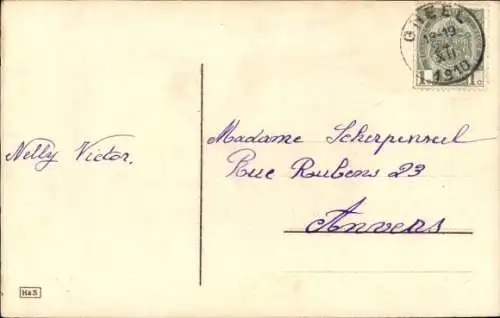 GHEEL
18-19
XII
1910
1 1
Nelly Victor.
Madame Scherpenseel
Rue Rubens 23
Anvers
H&S